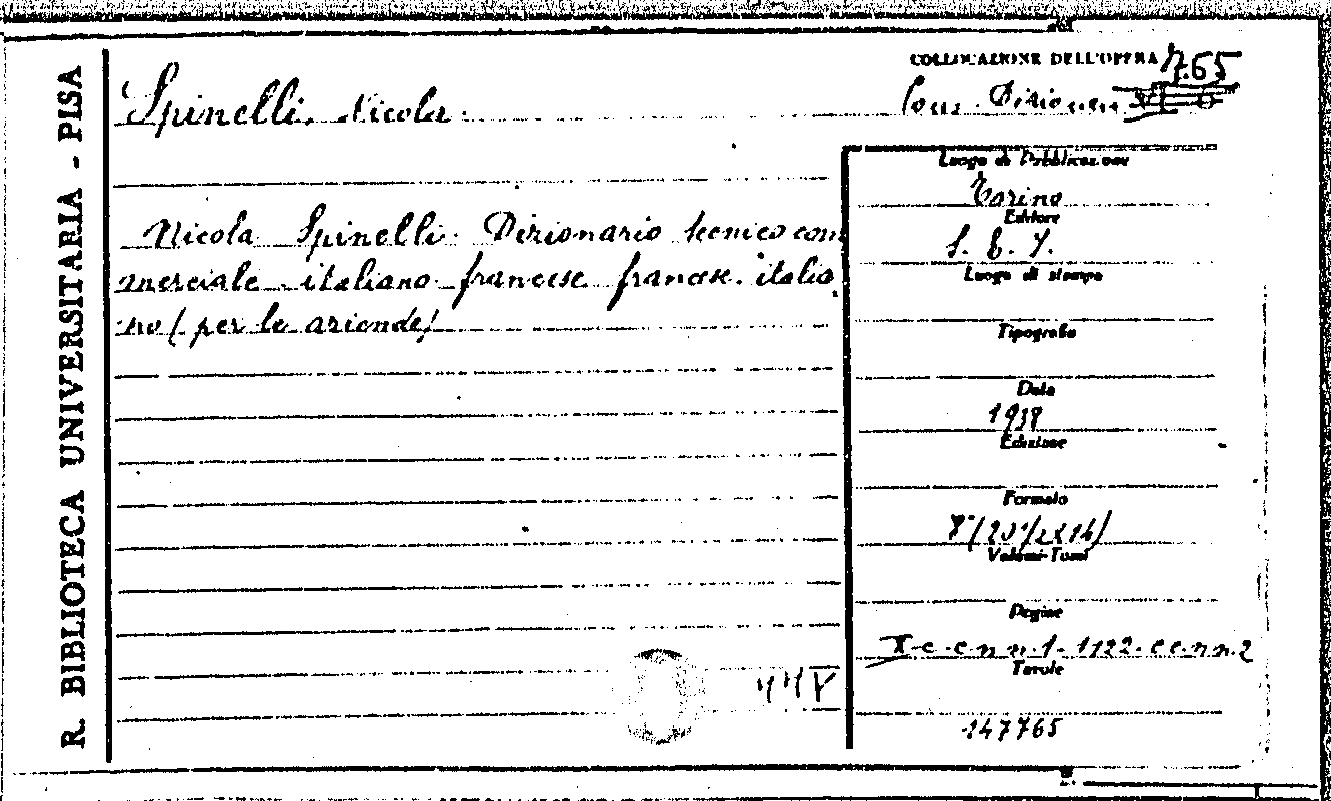 R. BIBLIOTECA UNIVERSITARIA - PISA
COLLOCAZIONE DELL'OPERA
Cons. Dizionari 765
Spinelli, Nicola.
Nicola Spinelli. Dizionario tecnico com
merciale italiano francese francese. italia
no (per le aziende)
Luogo di Pubblicazione
Torino
Editore
S. E. I.
Luogo di stampa
Tipografia
Data
1938
Edizione
Formato
Volumi-Tomi
Pagine
X-c.c.n n.1-1122-c c.n n.2
Tavole
147765